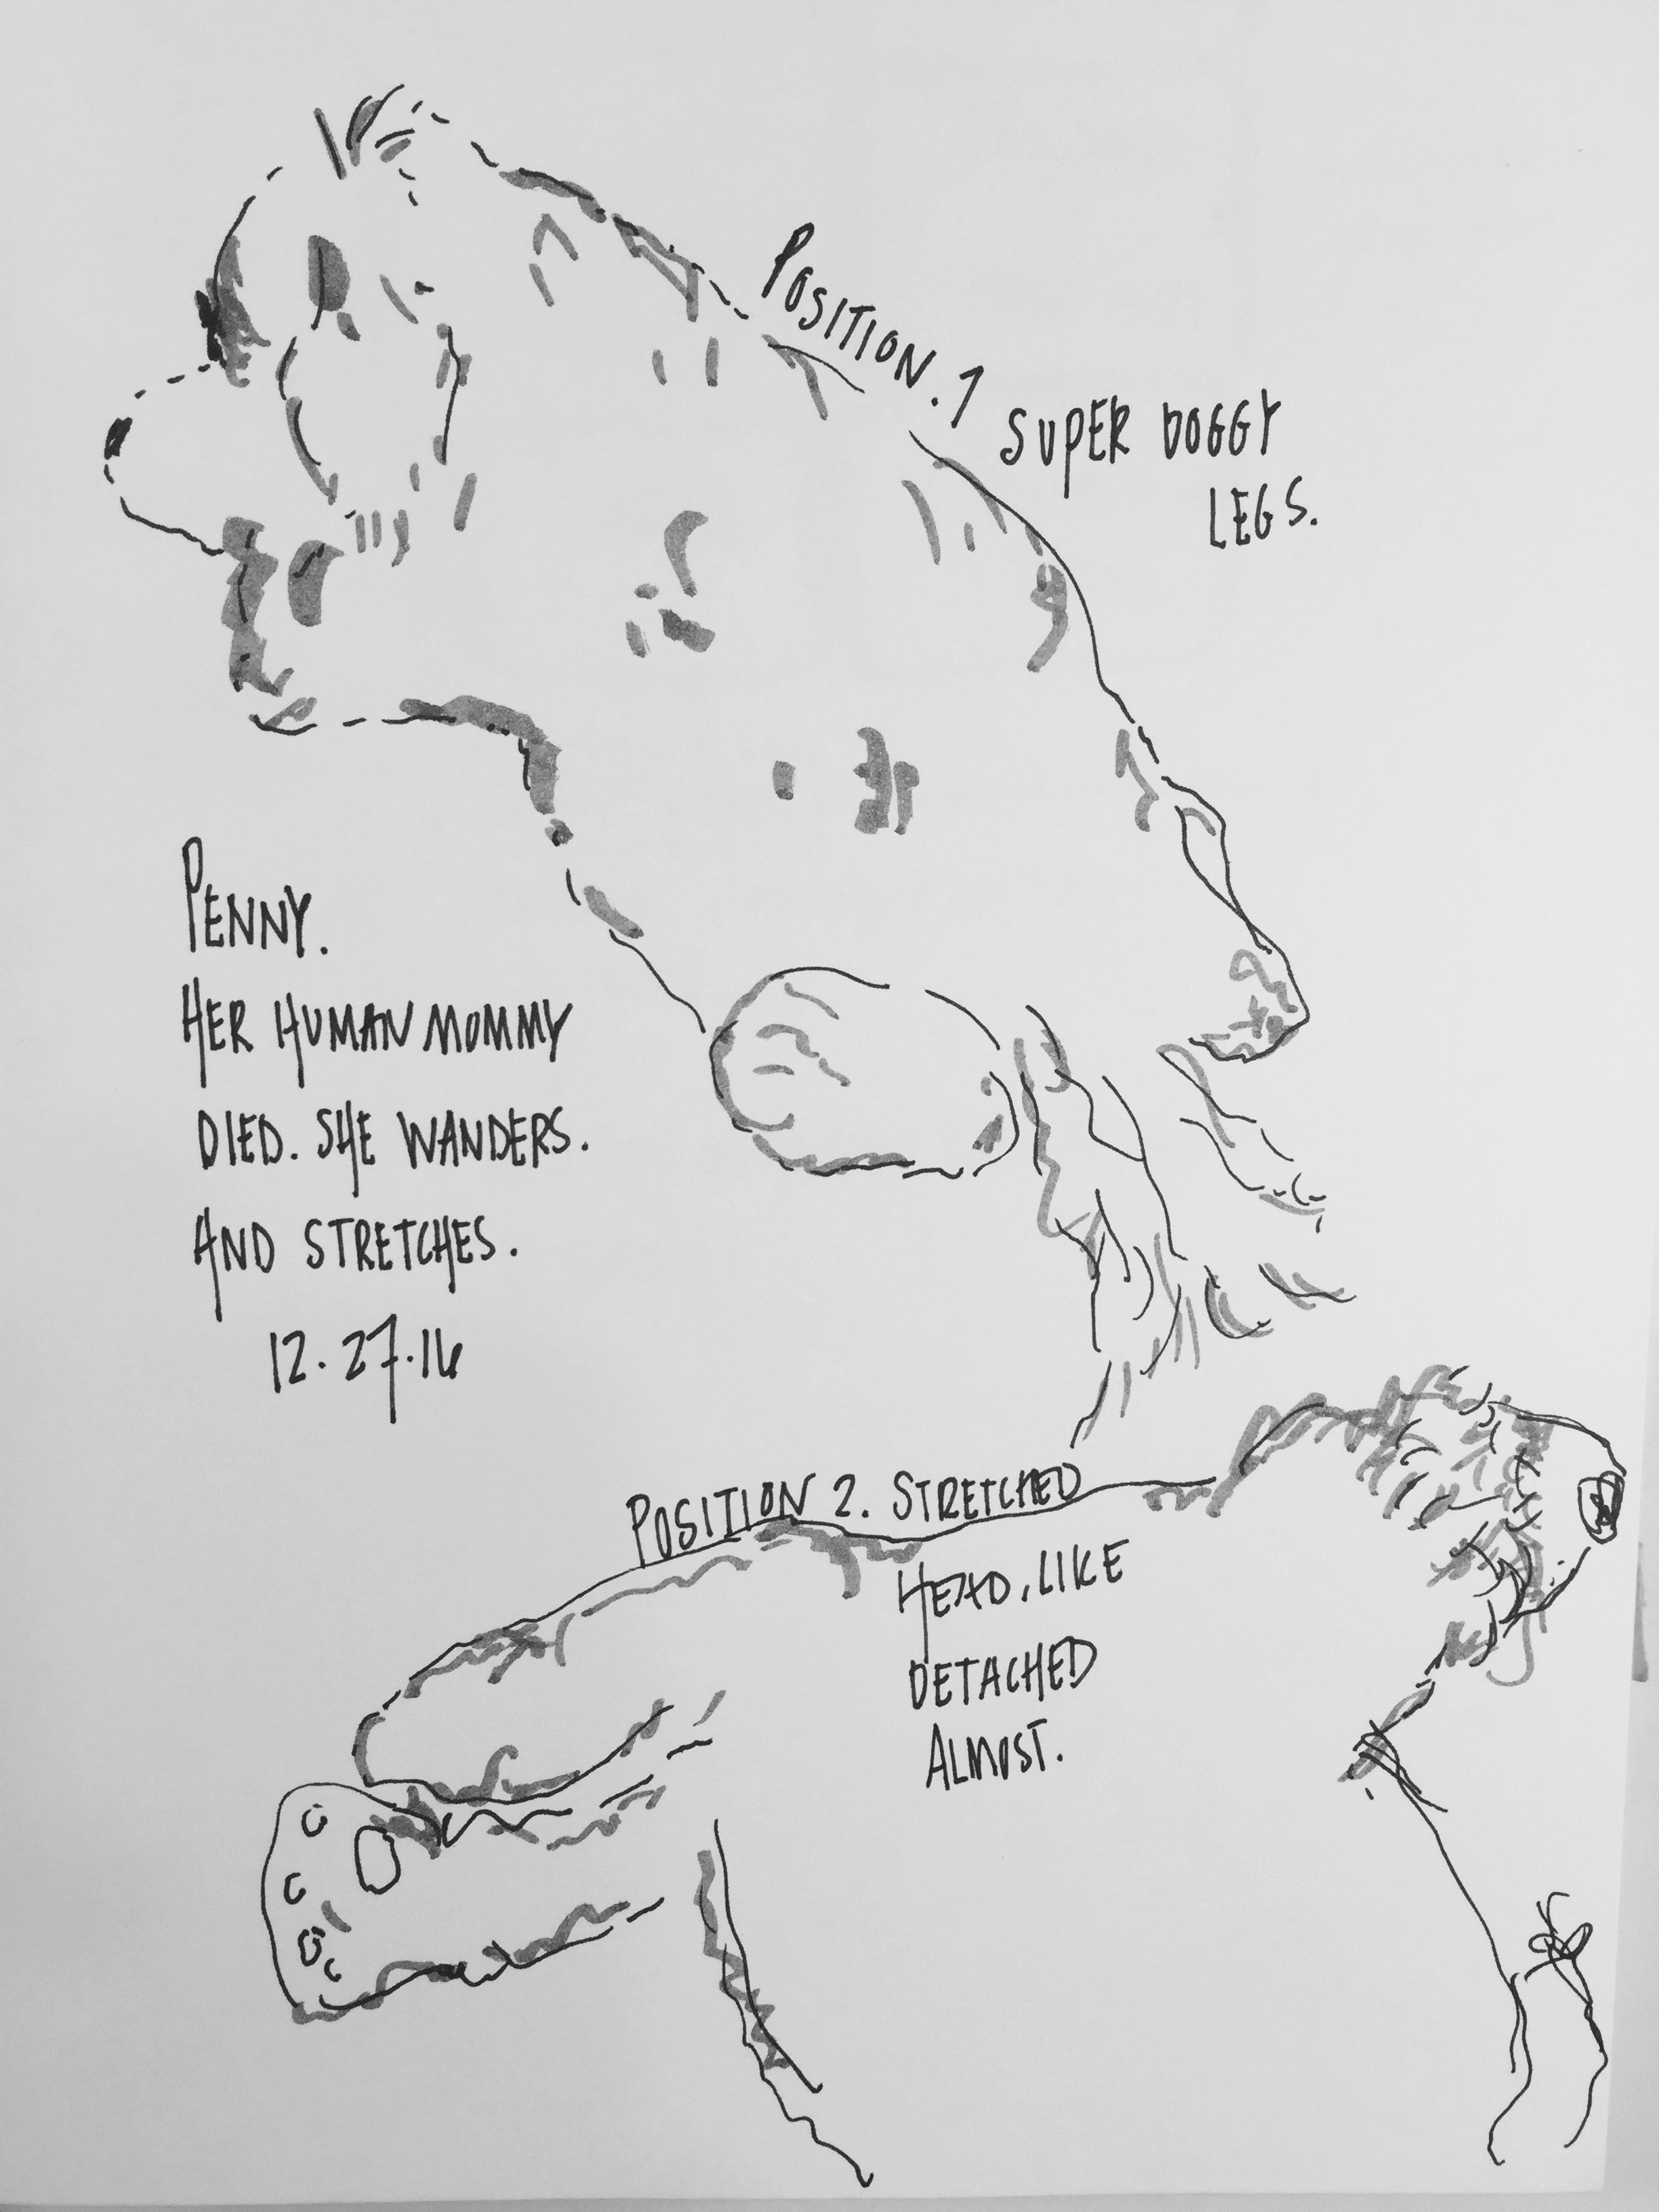 POSITION. 1
SUPER DOGGY
LEGS.
PENNY.
HER HUMAN MOMMY
DIED. SHE WANDERS.
AND STRETCHES.
12.27.16
POSITION 2. STRETCHED
HEAD, LIKE
DETACHED
ALMOST.